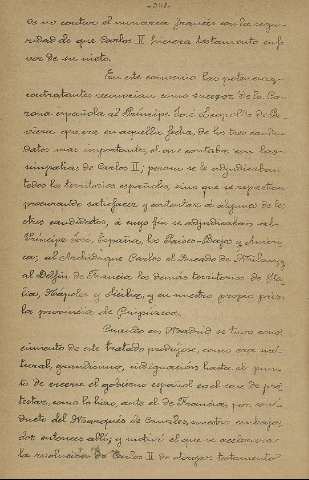 - 341 -
se no contar el monarca francés con la segu-
ridad de que Carlos II hiciera testamento en fa-
vor de su nieto.
En este convenio las potencias
contratantes reconocían como sucesor de la Co-
rona española al Príncipe José Leopoldo de Ba-
viera que era en aquella fecha, de los tres candi-
datos más importantes, el que contaba con las
simpatías de Carlos II; pero no se le adjudicaban
todos los territorios españoles, sino que se repartían
procurando satisfacer y contentar a algunos de los
otros candidatos, á cuyo fin se adjudicaban al
Príncipe José, España, los Países-Bajos y Améri-
ca; al Archiduque Carlos el Ducado de Milan, y
al Delfín de Francia los demás territorios de Ita-
lia, Nápoles y Sicilia, y en nuestro propio país
la provincia de Guipuzcoa.
Cuando en Madrid se tuvo cono-
cimiento de este tratado produjose, como era na-
tural, grandísima indignación hasta el pun-
to de creerse el gobierno español en el caso de pro-
testar, como lo hizo, ante el de Francia, por con-
ducto del Marqués de Canales, nuestro embaja-
dor entonces allí; y motivó el que se acelerara
la resolución de Carlos II de otorgar testamento